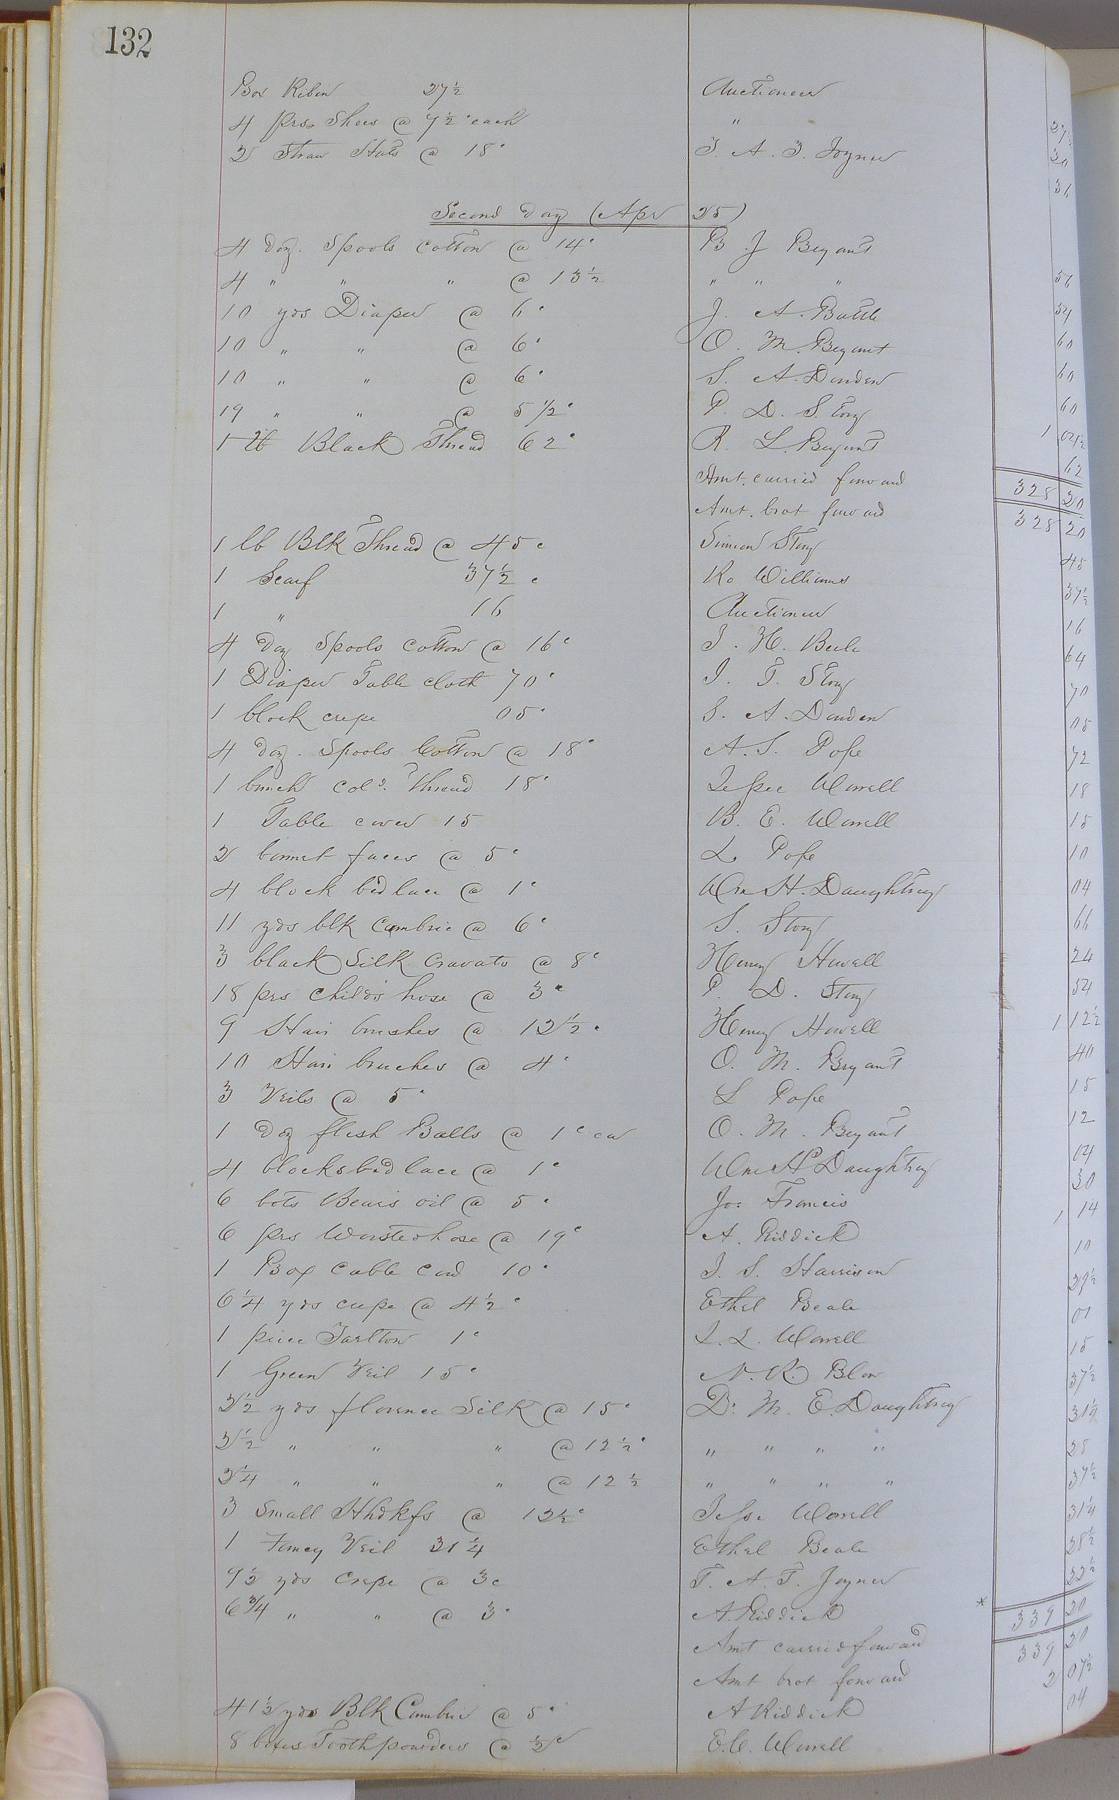 132
Box Riben 27½ Auctioneer 27½
4 prs. Shoes @ 7½ c each " 30
2 Straw Hats @ 18c T. A. T. Joyner 36
Second day (Apr 25)
4 doz. Spools cotton @ 14c B J Bryant 56
4 " " " @ 13½ " " " 54
10 yds Diaper @ 6c J. A. Battle 60
10 " " @ 6c O. M. Bryant 60
10 " " @ 6c S. A. Darden 60
19 " " @ 5 1/2c P. D. S. Story 1 04½
1 lb Black Thread 62c R. L. Bryant 62
Amt. carried forward 328 20
Amt. brot forward 328 20
1 lb Blk Thread @ 45c Simeon Story 45
1 Scarf 37½ c Ro Williams 37½
1 " 16 Auctioneer 16
4 doz Spools cotton @ 16c J. H. Beale 64
1 Diaper Table cloth 70c J. T. Story 70
1 block crepe 05c S. A. Darden 05
4 doz. Spools Cotton @ 18c A. S. Pope 72
1 bunch cold. Thread 18c Jesse Worrell 18
1 Table cover 15 B. E. Worrell 15
2 bonnet faces @ 5c L Pope 10
4 block bed lace @ 1c Wm H. Daughtrey 04
11 yds blk Cambric @ 6c S. Story 66
3 black Silk Cravats @ 8c Henry Howell 24
18 prs childs hose @ 3c P. D. Story 54
9 Hair brushes @ 12½c Henry Howell 1 12½
10 Hair brushes @ 4c O. M. Bryant 40
3 Veils @ 5c L Pope 15
1 doz flesh Balls @ 1c ea O. M. Bryant 12
4 blocks bed lace @ 1c Wm H Daughtrey 04
6 bots Bears oil @ 5c Jos Francis 30
6 prs Worsted hose @ 19c A. Riddick 1 14
1 Box Cable Cord 10c J. S. Harrison 10
6¼ yds crepe @ 4½c Ethel Beale 29½
1 piece Tarlton 1c J. L. Worrell 01
1 Green Veil 15c N. R. Blow 15
2½ yds florence Silk @ 15c Dr. M. E. Daughtrey 37½
2½ " " " @ 12½c " " " " 31½
2¼ " " " @ 12½ " " " " 28
3 Small Hhdkfs @ 12½c Jesse Worrell 37½
1 Fancy Veil 31¼ Ethel Beale 31¼
9½ yds Crepe @ 3c T. A. T. Joyner 28½
6¾ " " @ 3c A. Riddick 22½
Amt carried forward * 339 20
Amt brot forward 339 20
41½ yds Blk Cambric @ 5c A Riddick 2 07½
8 boxes Tooth powders @ ½c E. C. Worrell 04